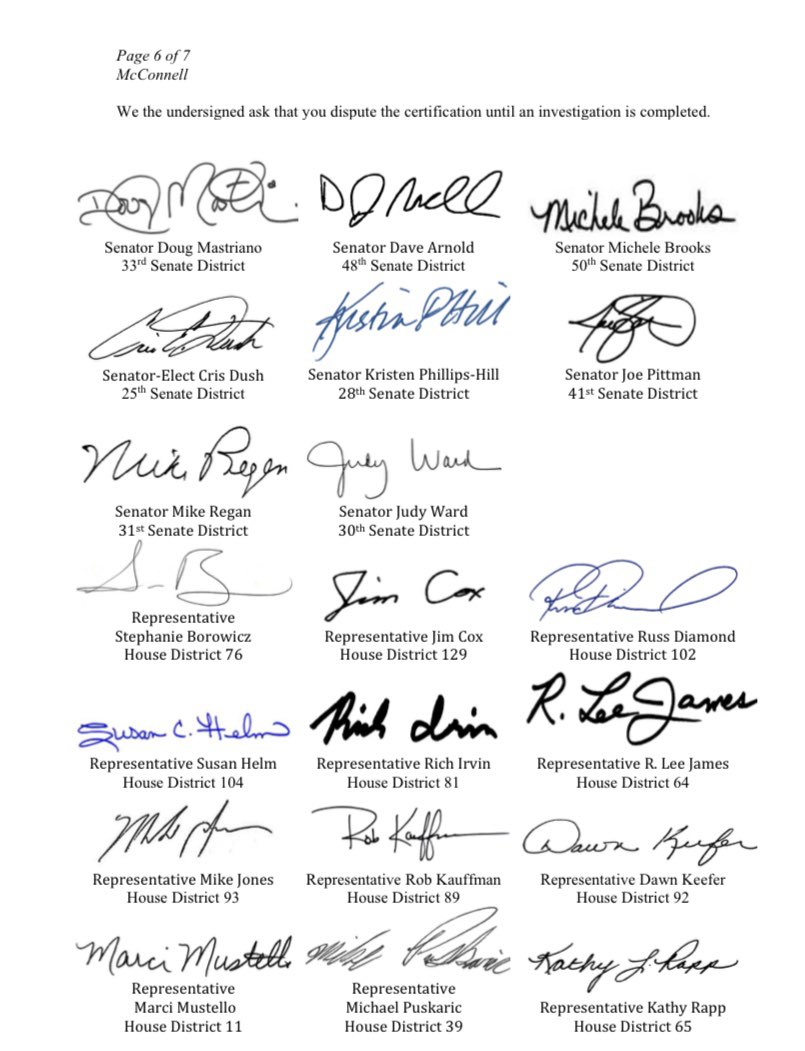 Page 6 of 7
McConnell
We the undersigned ask that you dispute the certification until an investigation is completed.
Doug
Senator Doug Mastriano
33rd Senate District
Senator Dave Arnold
48th Senate District
Michele Brooks
Senator Michele Brooks
50th Senate District
Cris E Dush
Senator-Elect Cris Dush
25th Senate District
Kristin P Hill
Senator Kristen Phillips-Hill
28th Senate District
Senator Joe Pittman
41st Senate District
Mike Regan
Senator Mike Regan
31st Senate District
Judy Ward
Senator Judy Ward
30th Senate District
Representative
Stephanie Borowicz
House District 76
Jim Cox
Representative Jim Cox
House District 129
Representative Russ Diamond
House District 102
Susan C. Helm
Representative Susan Helm
House District 104
Rich Irvin
Representative Rich Irvin
House District 81
R. Lee James
Representative R. Lee James
House District 64
Representative Mike Jones
House District 93
Rob Kauffman
Representative Rob Kauffman
House District 89
Dawn Keefer
Representative Dawn Keefer
House District 92
Marci Mustello
Representative
Marci Mustello
House District 11
Mike
Representative
Michael Puskaric
House District 39
Kathy L. Rapp
Representative Kathy Rapp
House District 65